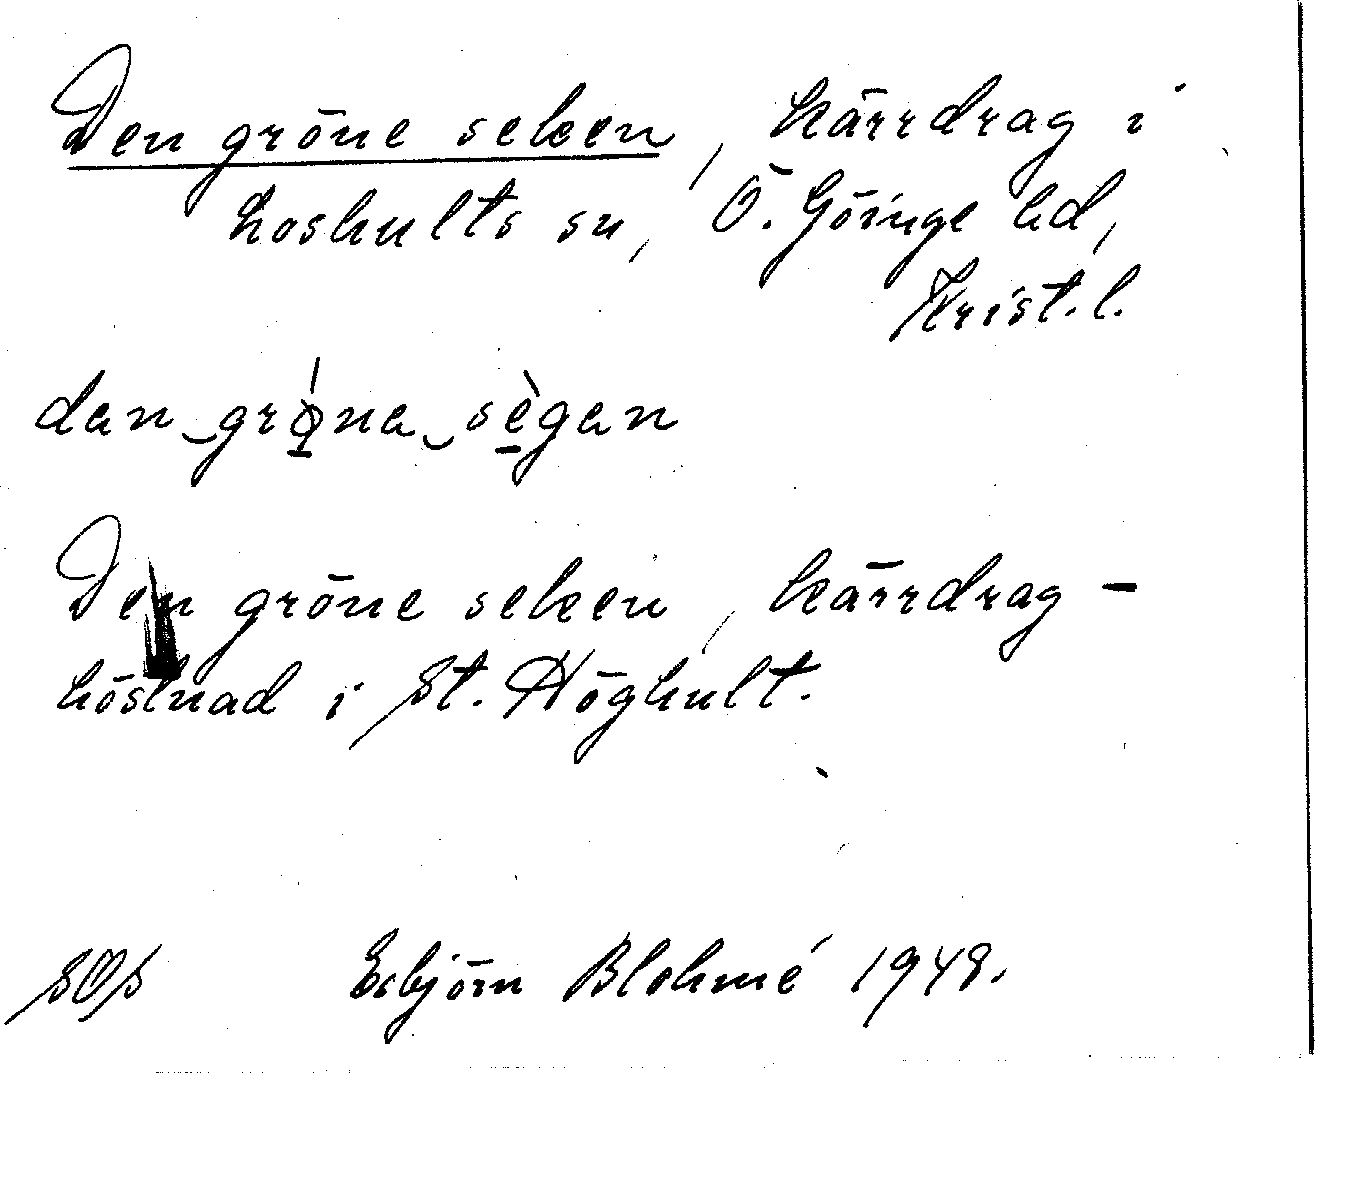 Den gröne seken, kärrdrag i
Loshults sn, Ö. Göinge hd,
Krist. l.
dan‿grǿ̱na‿sè̱gan
Den gröne seken, kärrdrag -
höslnad i St. Höghult.
SOS Esbjörn Blohmé 1948.